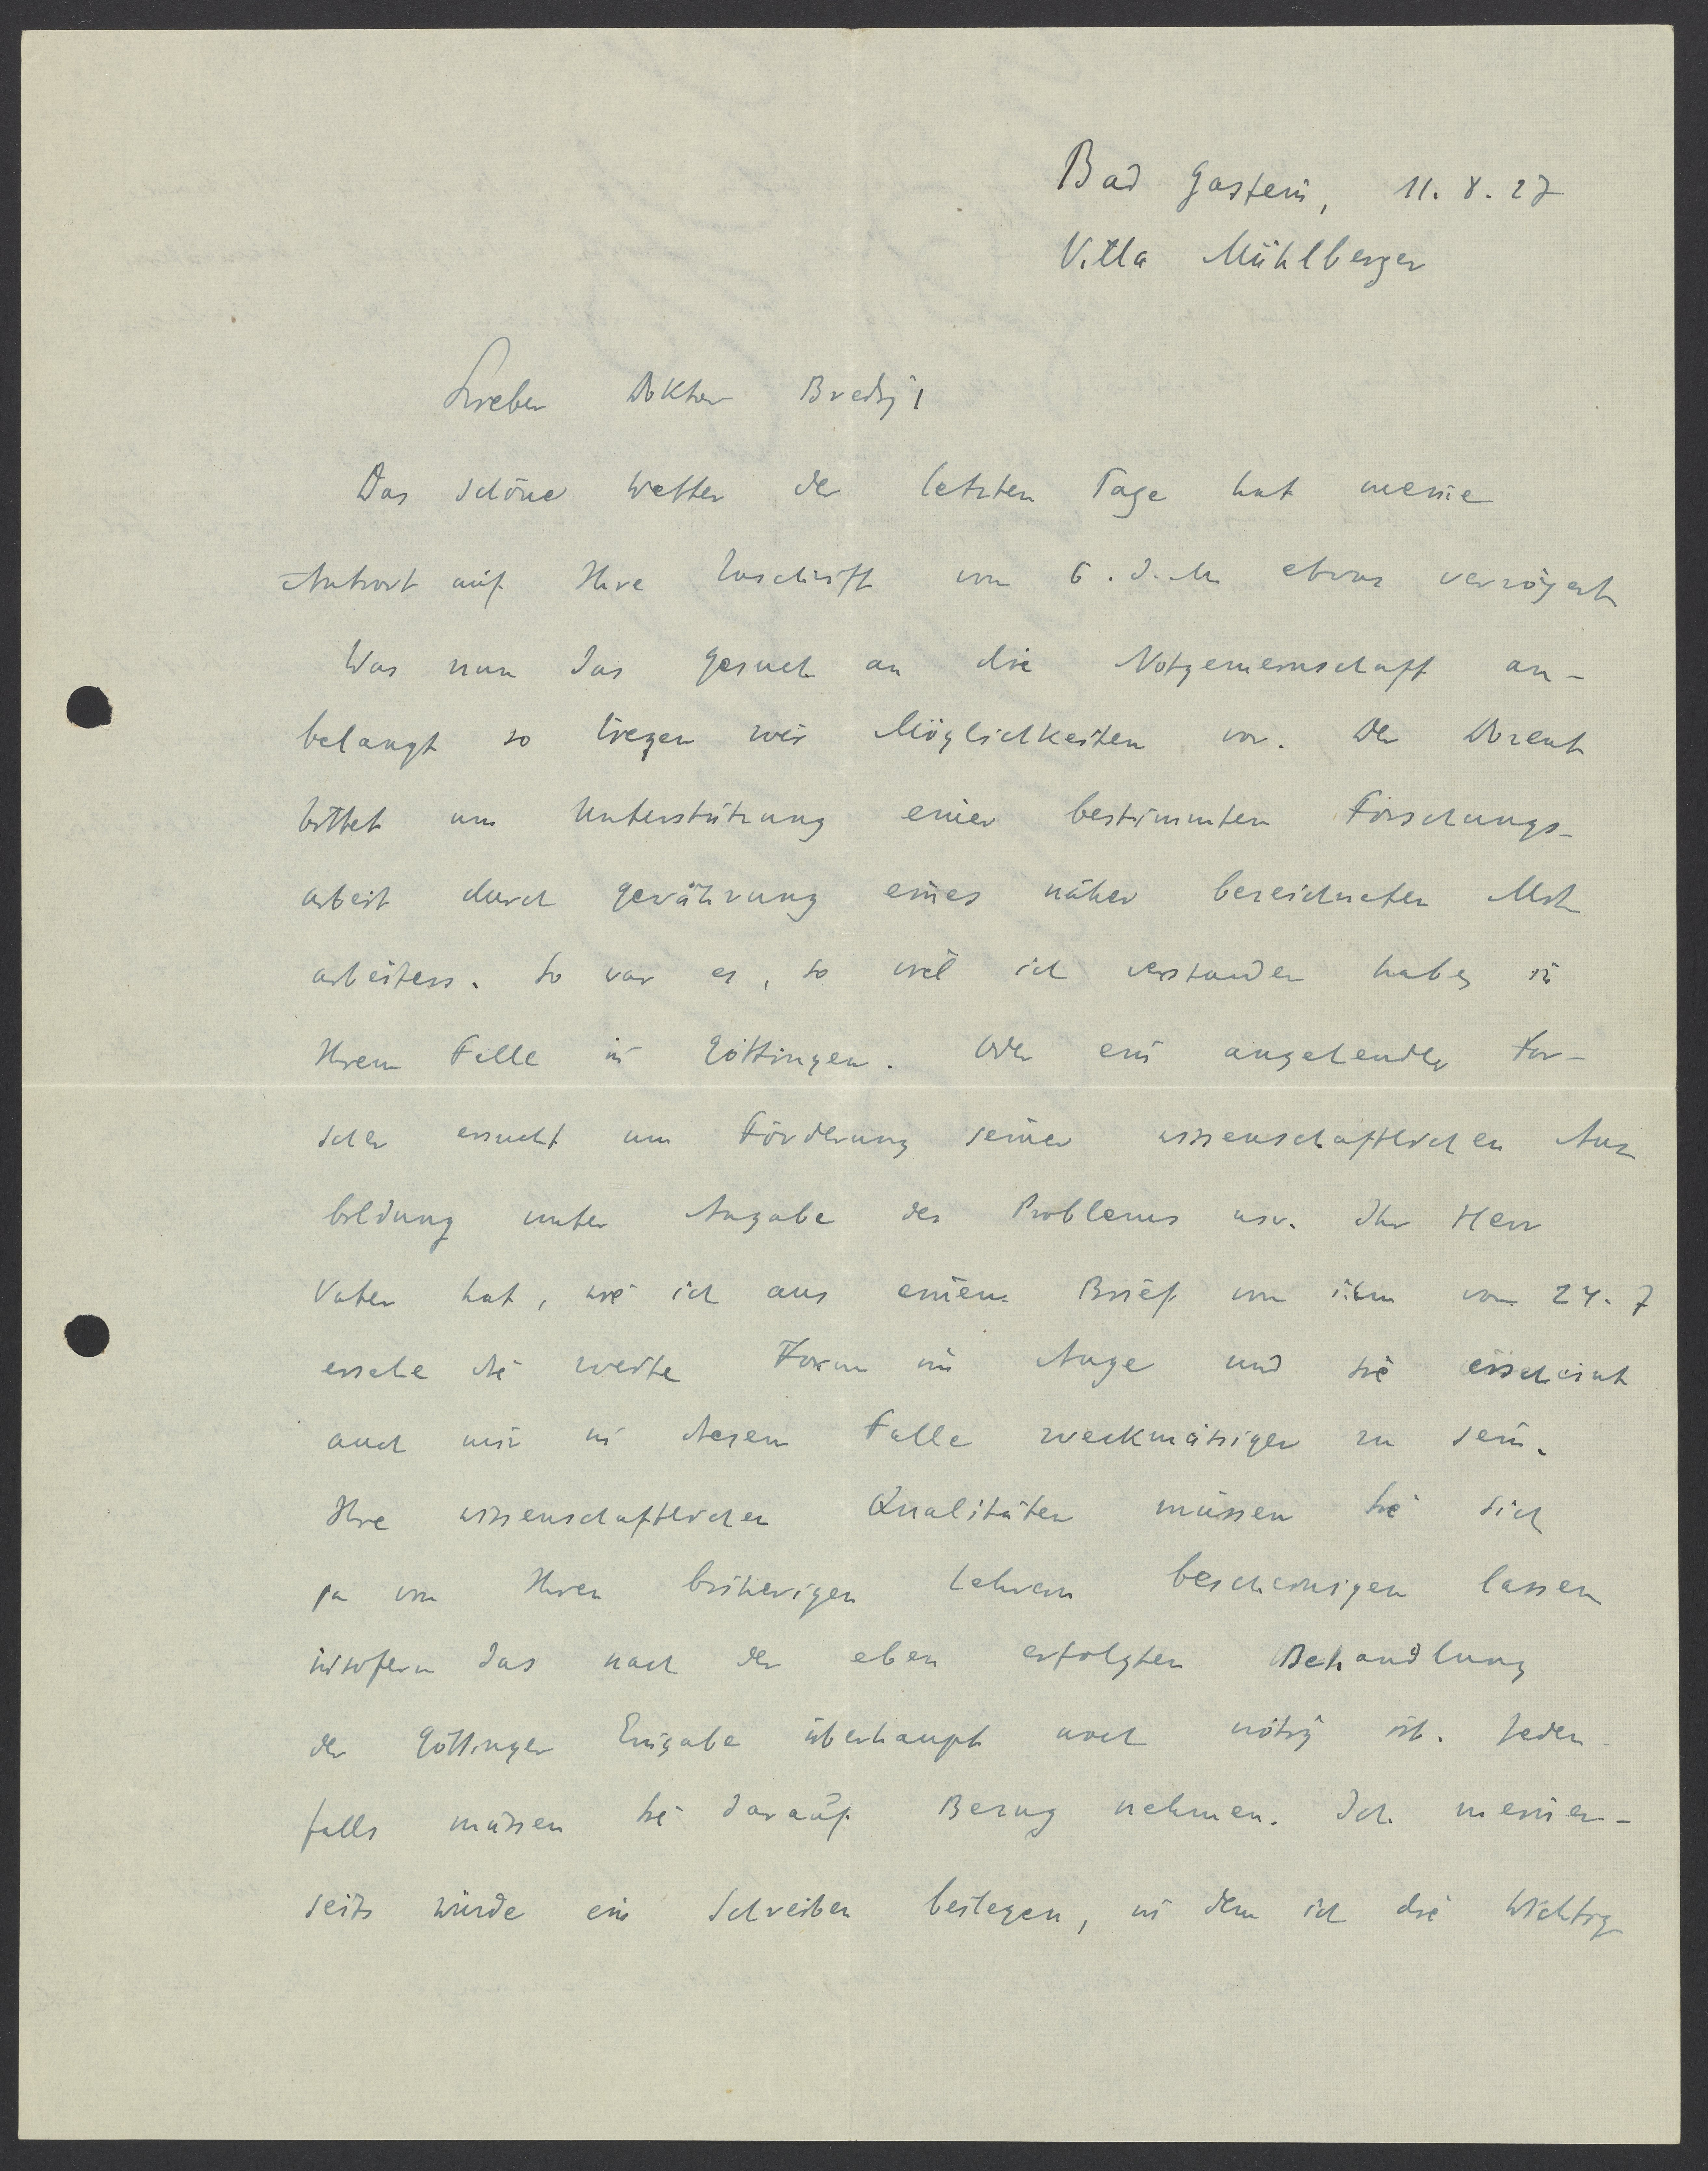 Bad Gastein, 11.8.27
Villa Mühlberger
Lieber Doktor Bredig!
Das schöne Wetter der letzten Tage hat meine
Antwort auf Ihre Zuschrift vom 6. d. M. etwas verzögert
Was nun das Gesuch an die Notgemeinschaft an-
belangt so liegen zwei Möglichkeiten vor. Der Dozent
bittet um Unterstützung einer bestimmten Forschungs-
arbeit durch Gewährung eines näher bezeichneten Mit
arbeiters. So war es, so viel ich verstanden habe, in
Ihrem Falle in Göttingen. Oder ein angehender For-
scher ersucht um Förderung seiner wissenschaftlichen Aus
bildung unter Angabe des Problems usw. Ihr Herr
Vater hat, wie ich aus einem Brief von ihm vom 24. 7
ersehe die zweite Form im Auge und sie erscheint
auch mir in diesem Falle zweckmässiger zu sein.
Ihre wissenschaftlichen Qualitäten müssen Sie sich
ja von Ihren bisherigen Lehrern bescheinigen lassen
insofern das nach der eben erfolgten Behandlung
der Göttinger Eingabe überhaupt noch nötig ist. Jeden-
falls müssen Sie darauf Bezug nehmen. Ich meiner-
seits würde ein Schreiben beilegen, in dem ich die Wichtig